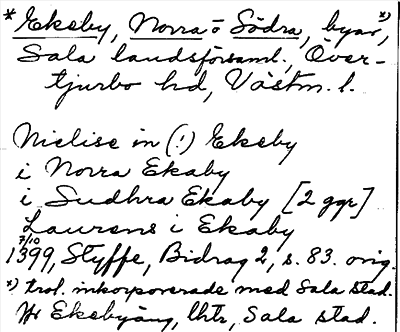 * Ekeby, Norra o Södra, byar, *)
Sala landsförsaml., Över-
tjurbo hd, Västm. l.
Nielise in (!) Ekeby
i Norra Ekaby
i Sudhra Ekaby [2 ggr]
Laurens i Ekaby
7/10 1399, Styffe, Bidrag 2, s. 83. orig.
*) trol. inkorporerade med Sala stad.
Jfr Ekebyäng, lht, Sala stad.